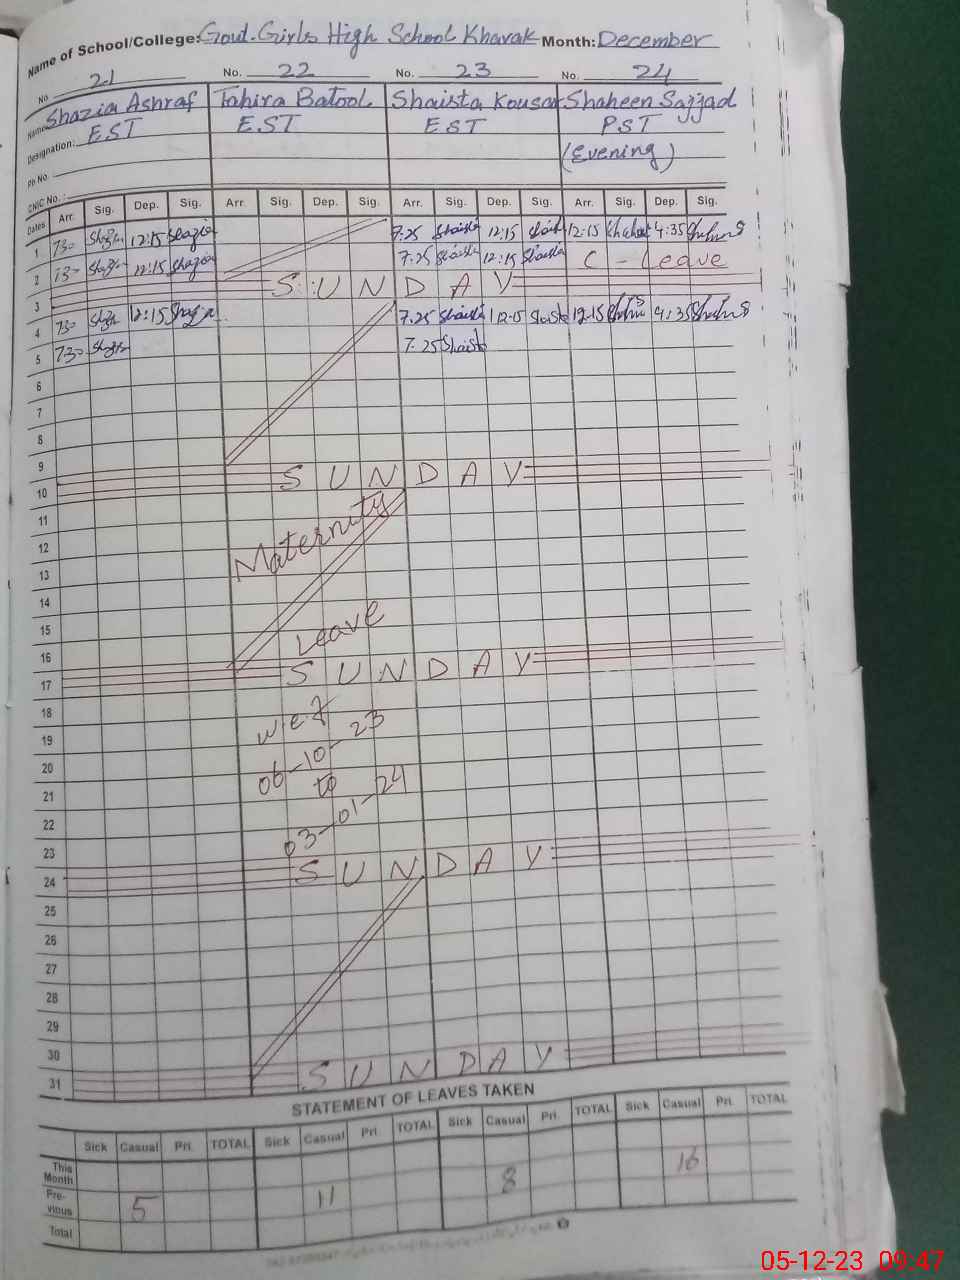 Name of School/College: Govt. Girls High School Kharak Month: December
No 21 No. 22 No. 23 No. 24
Name Shazia Ashraf Tahira Batool Shaista Kousar Shaheen Sajjad
Designation: EST EST EST PST
Ph No. (Evening)
CNIC No. :
Dates Arr. Sig. Dep. Sig. Arr. Sig. Dep. Sig. Arr. Sig. Dep. Sig. Arr. Sig. Dep. Sig.
1 7:30 12:15 Shazia 7:25 Shaista 12:15 12:15 4:35
2 7:30 12:15 Shazia 7.25 Shaista 12:15 Shaista C - Leave
3 SUNDAY
4 730 12:15 7.25 Shaista 12:15 Shaista 12:15 4:35
5 730 7.25 Shaista
6
7
8
9
10 SUNDAY
11
12 Maternity
13
14
15 Leave
16
17 SUNDAY
18
19 w.e.f
20 06-10-23
21 to
22 03-01-24
23
24 SUNDAY
25
26
27
28
29
30
31 SUNDAY
STATEMENT OF LEAVES TAKEN
Sick Casual Pri. TOTAL Sick Casual Pri. TOTAL Sick Casual Pri. TOTAL Sick Casual Pri. TOTAL
This Month 16
Pre-vious 5 11 8
Total
05-12-23 09:47